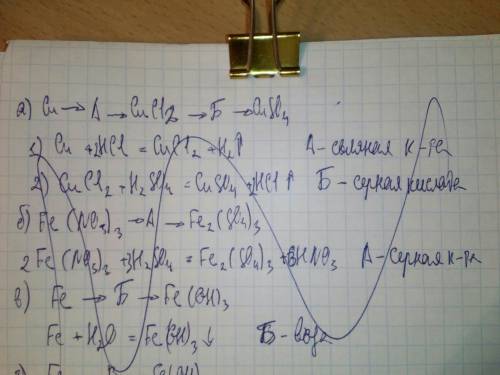 а) Cu → А → CuCl2 → Б → CuSO4
1) Cu + 2HCl = CuCl2 + H2↑ А - соляная к-та
2) CuCl2 + H2SO4 = CuSO4 + 2HCl↑ Б - серная кислота
б) Fe(NO3)3 → А → Fe2(SO4)3
2Fe(NO3)3 + 3H2SO4 = Fe2(SO4)3 + 6HNO3 А - серная к-та
в) Fe → Б → Fe(OH)3
Fe + H2O = Fe(OH)3↓ Б - вода